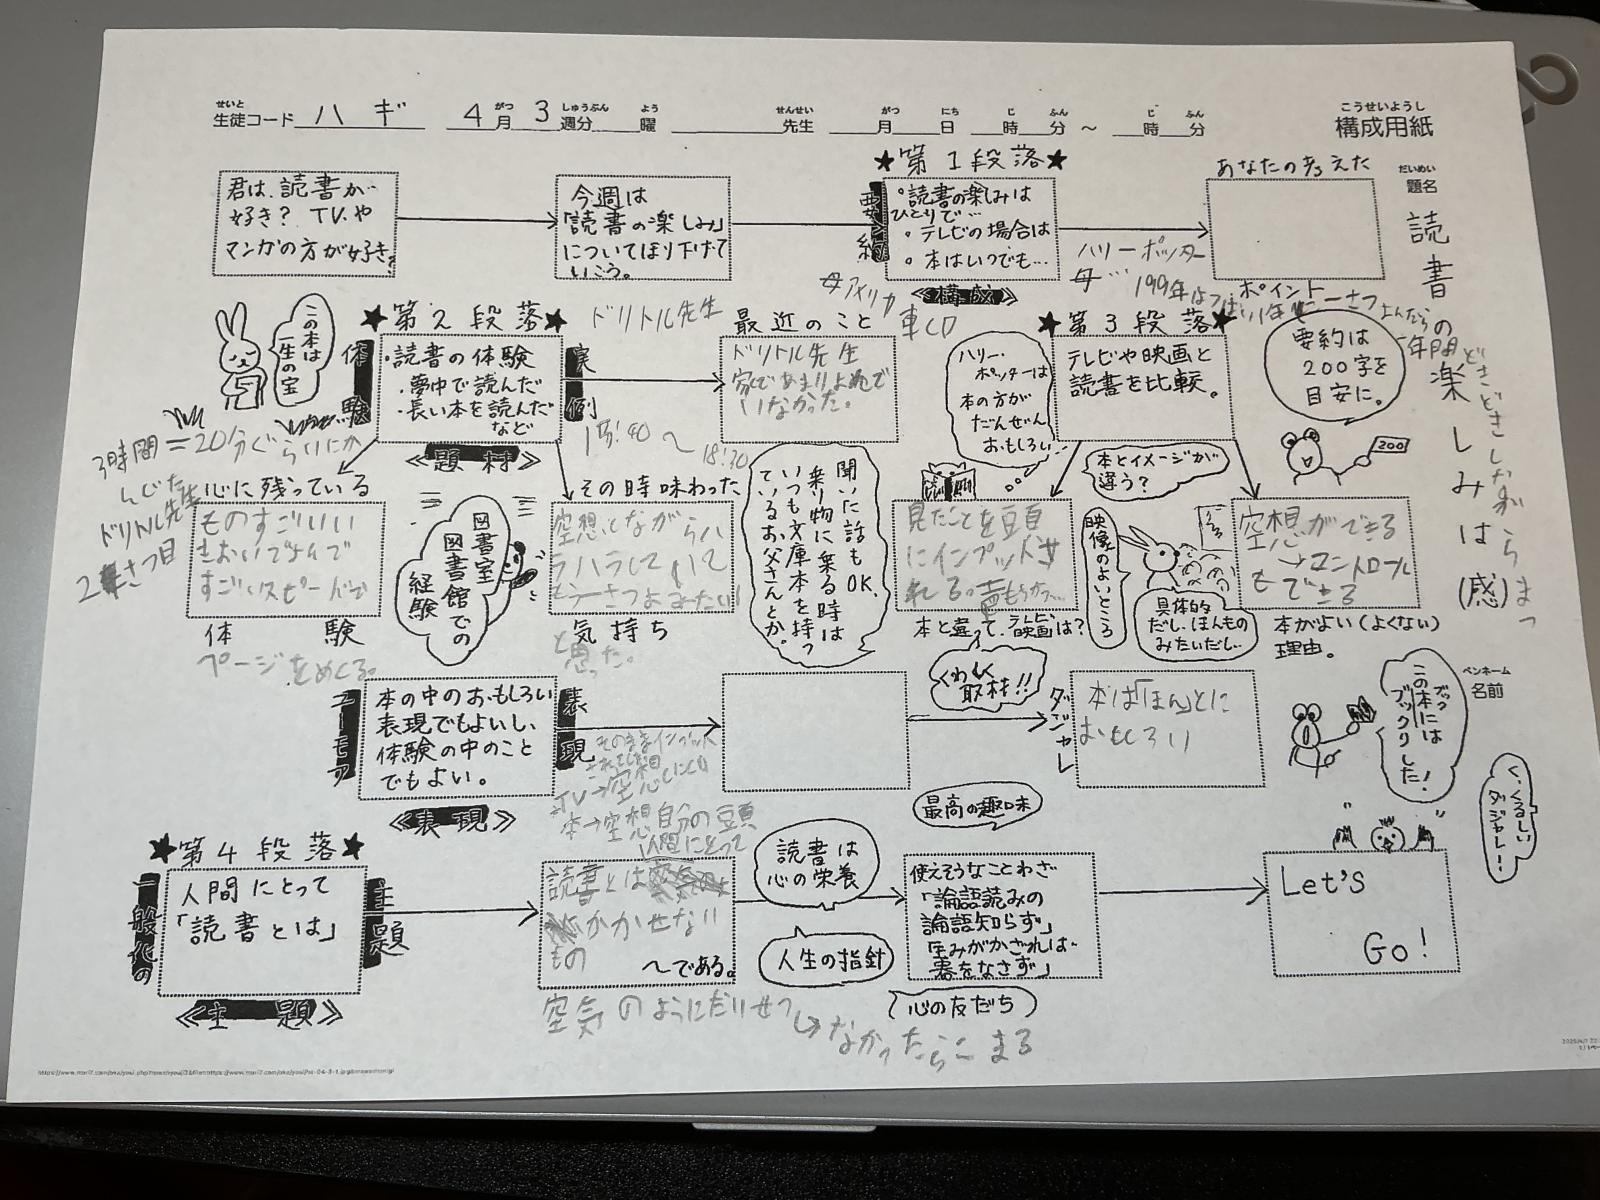 せいと
生徒コード ハギ 4月 3週分 曜 先生 月 日 時 分 ～ 時 分
がつ しゅうぶん よう せんせい がつ にち じ ふん じ ふん
こうせいようし
構成用紙
だいめい
題名
読書の楽しみは(感)
ペンネーム
名前
君は、読書が
好き? TVや
マンガの方が好き?
今週は
「読書の楽しみ」
についてほり下げて
いこう。
★第1段落★
要約
・読書の楽しみは
ひとりで…
・テレビの場合は
・本はいつでも…
《構成》
あなたの考えた
ハリーポッター
母…
母アメリカ
車CD
ポイント
要約は
200字を
目安に。
200
どきどきしながらまつ
この本は
一生の宝
★第2段落★
体験
・読書の体験
・夢中で読んだ
・長い本を読んだ
など
《題材》
実例
ドリトル先生
最近のこと
ドリトル先生
いなかった。
18:30
3時間=20分ぐらいにか
んじた
ドリトル先生
2さつ目
心に残っている
ものすごいい
きおいでよんで
すごいスピードで
体験
ページをめくる。
図書室
図書館での
経験
その時味わった
空想しながらハ
ラハラして
もう一さつよみたい
気持ち
と思った。
聞いた話もOK。
乗り物に乗る時は
いつも文庫本を持っ
ているお父さんとか。
★第3段落★
テレビや映画と
読書を比較。
ハリー・
ポッターは
本の方が
だんぜん
おもしろい
本とイメージが
違う?
見たことを頭
にインプットさ
れる
本と違って、テレビ映画は?
映像のよいところ
具体的
だし、ほんもの
みたいだし…
空想ができる
→コントロール
もできる
本がよい(よくない)
理由。
くわしく
取材!!
ユーモア
本の中のおもしろい
表現でもよいし、
体験の中のこと
でもよい。
《表現》
表現
そのままインプット
TV→空想しにくい
本→空想自分の頭
ダジャレ
本は「ほん」とに
おもしろい
この本には
ブック
ブックリした!
く、くるしい
ダジャレ…
★第4段落★
一般化の
人間にとって
「読書とは」
《主題》
主題
人間にとって
読書とは
かかせない
もの
～である。
空気のようにだいせつ
→なかったらこまる
読書は
心の栄養
最高の趣味
人生の指針
心の友だち
使えそうなことわざ
「論語読みの
論語知らず」
「玉みがかざれば
器をなさず」
Let's
Go!